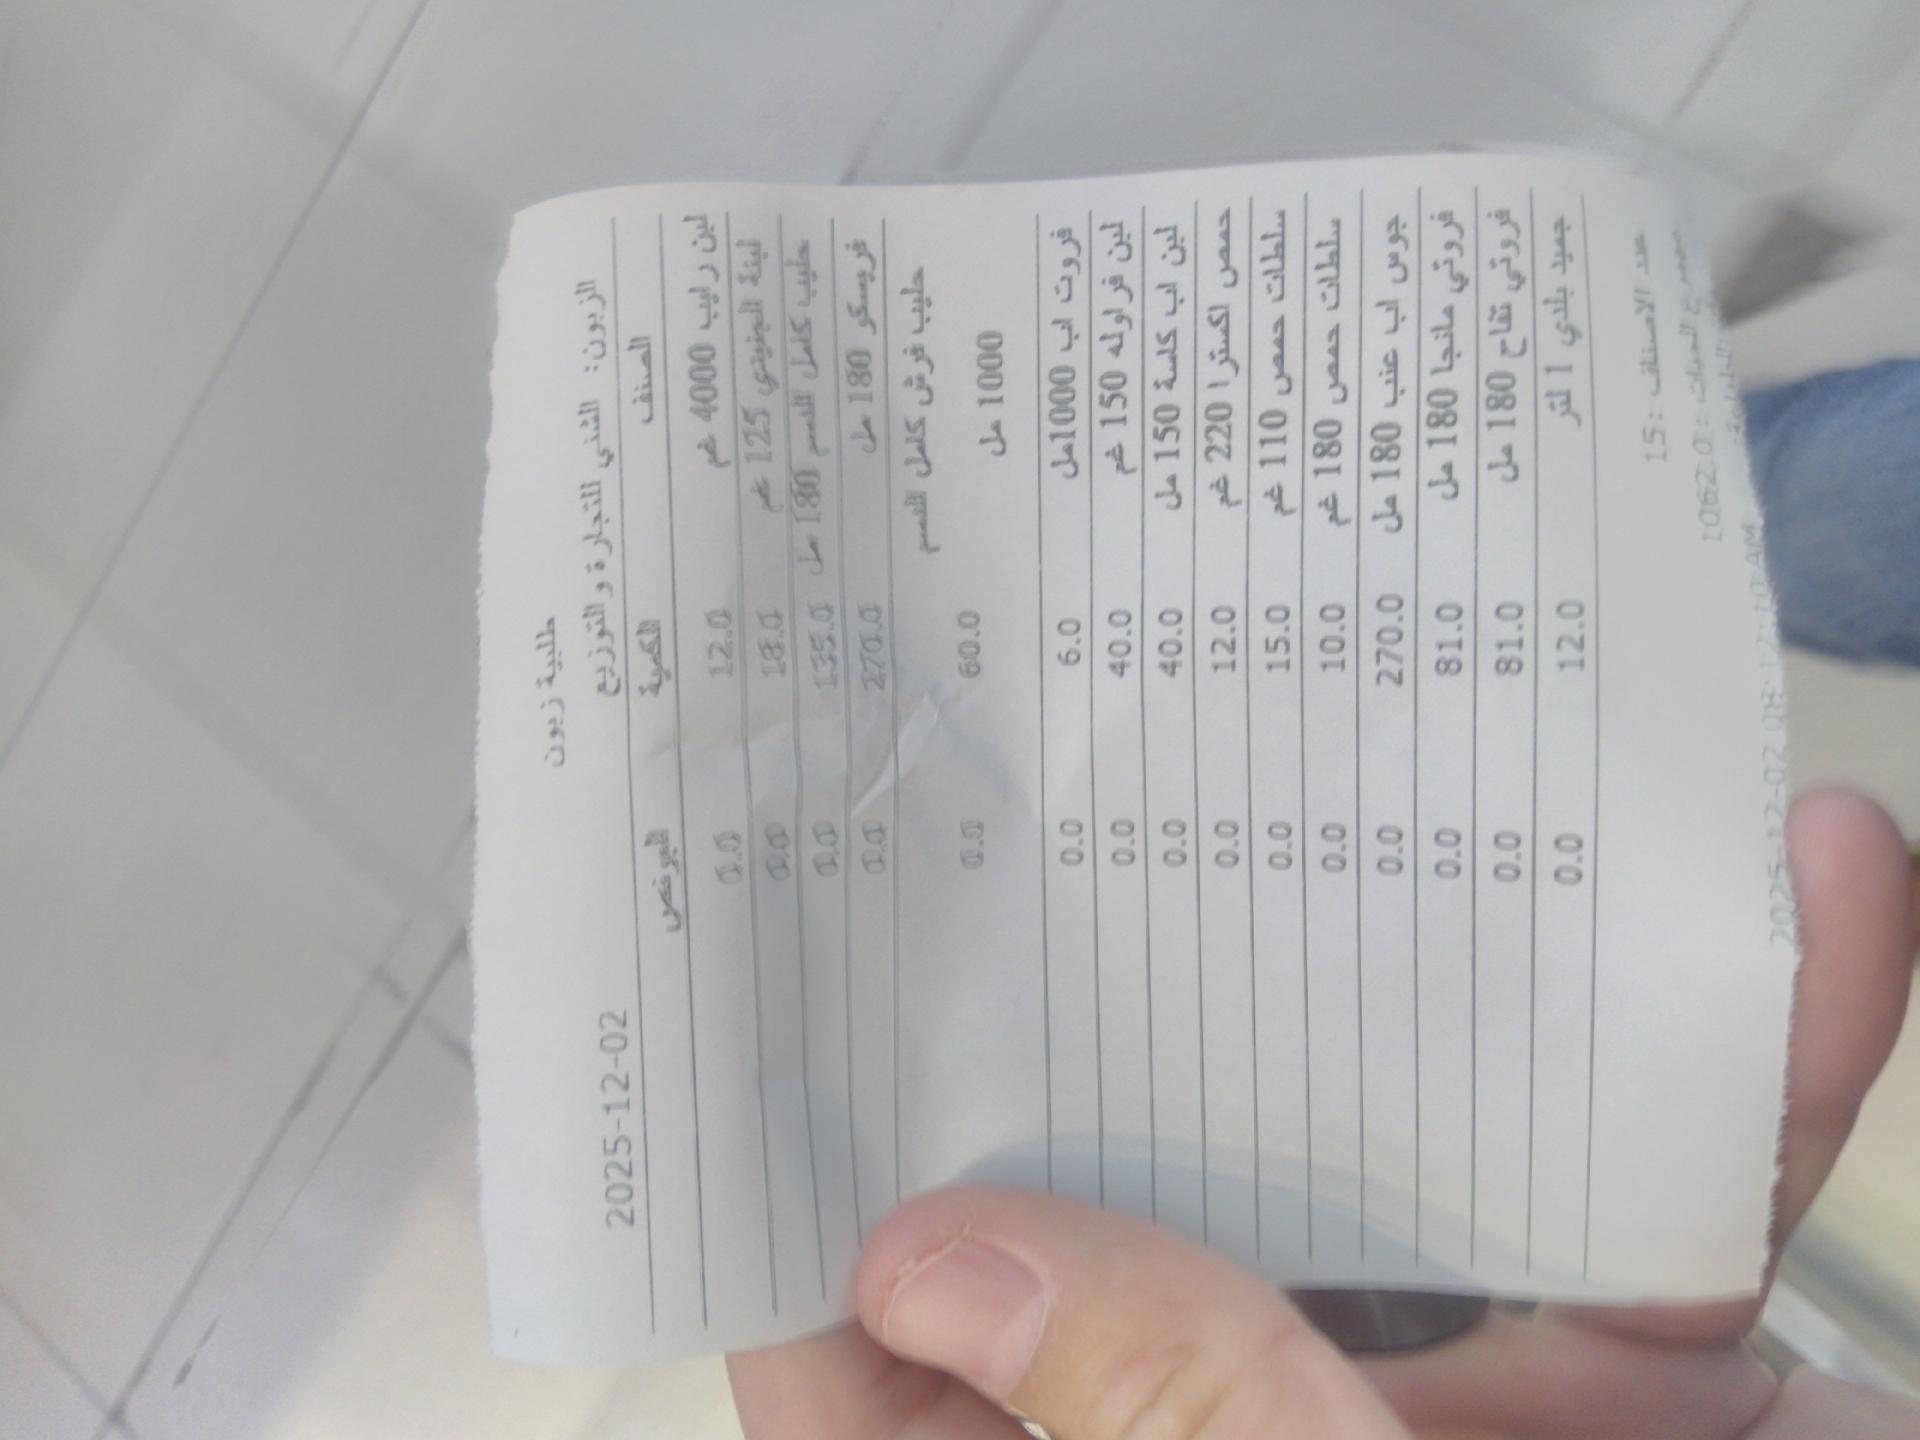 طلبية زبون
الزبون: الشني للتجارة و التوزيع 2025-12-02
الصنف الكمية البونص
لبن رايب 4000 غم 12.0 0.0
لبنة 125 غم 18.0 0.0
حليب كامل الدسم 180 مل 135.0 0.0
فريسكو 180 مل 270.0 0.0
حليب فرش كامل الدسم
1000 مل 60.0 0.0
فروت اب 1000مل 6.0 0.0
لبن فراوله 150 غم 40.0 0.0
لبن اب كاسة 150 مل 40.0 0.0
حمص اكسترا 220 غم 12.0 0.0
سلطات حمص 110 غم 15.0 0.0
سلطات حمص 180 غم 10.0 0.0
جوس اب عنب 180 مل 270.0 0.0
فروتي مانجا 180 مل 81.0 0.0
فروتي تفاح 180 مل 81.0 0.0
جميد بلدي 1 لتر 12.0 0.0
عدد الاصناف :15
1062.0
2025-12-02 08: